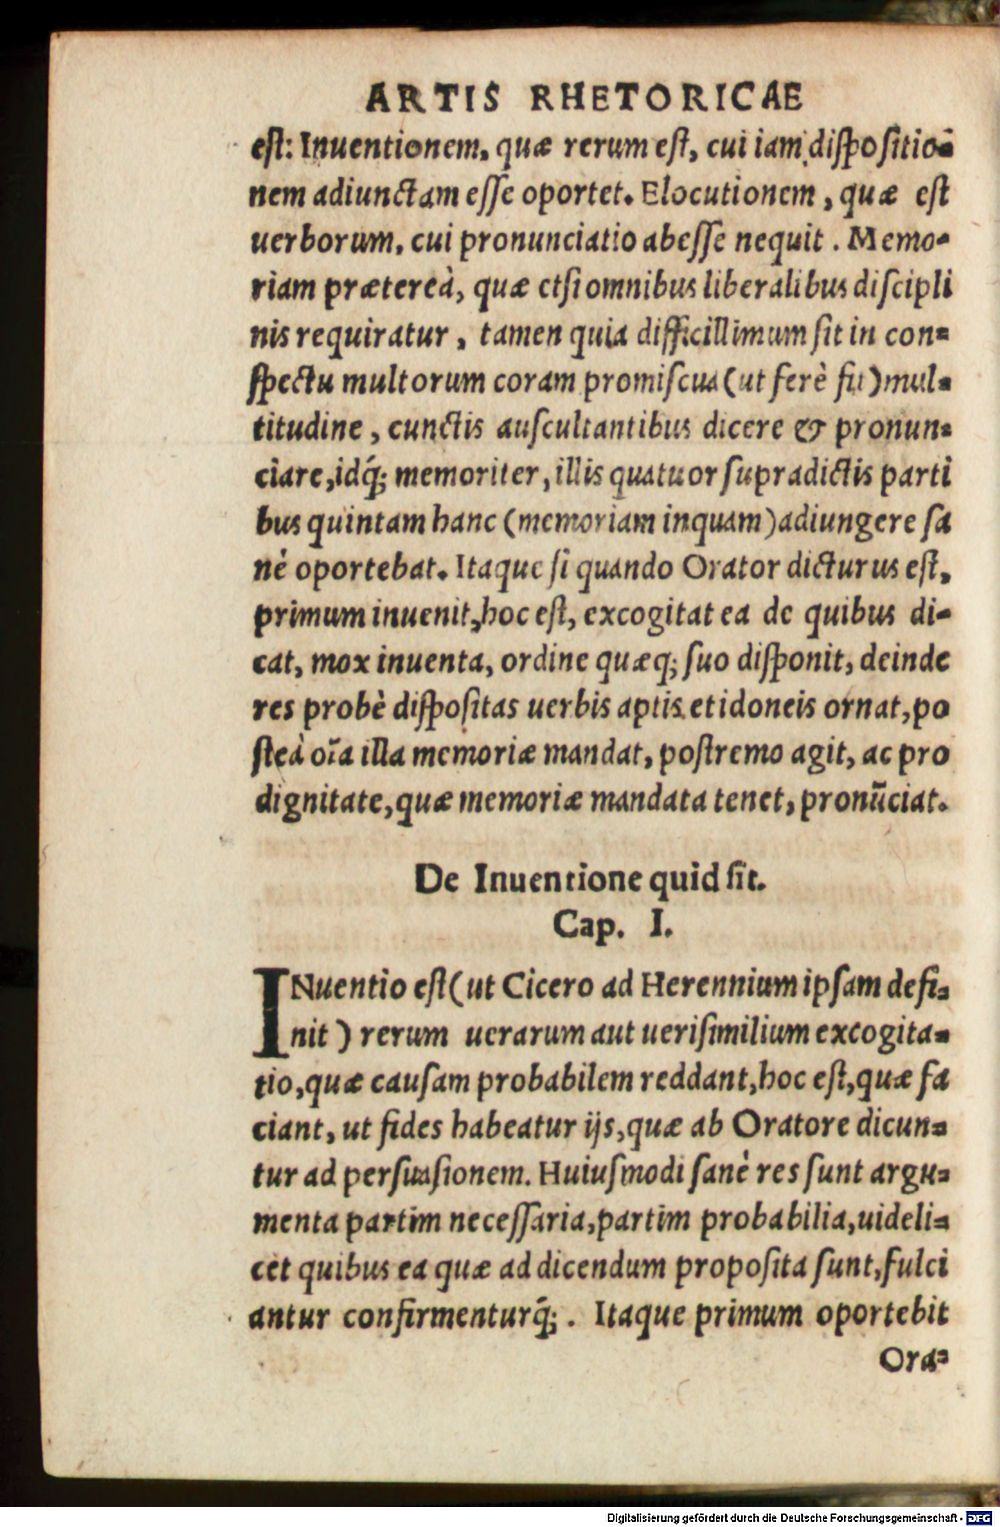 ARTIS RHETORICAE
eſt: Inuentionem, quæ rerum eſt, cui iam diſpoſitio-
nem adiunctam eſſe oportet. Elocutionem, quæ eſt
uerborum, cui pronunciatio abeſſe nequit. Memo-
riam prætereà, quæ etſi omnibus liberalibus diſcipli
nis requiratur, tamen quia difficillimum ſit in con-
ſpectu multorum coram promiſcua (ut ferè fit) mul-
titudine, cunctis auſcultantibus dicere & pronun-
ciare, idq́; memoriter, illis quatuor ſupradictis parti
bus quintam hanc (memoriam inquam) adiungere ſa
nè oportebat. Itaque ſi quando Orator dicturus eſt,
primum inuenit, hoc eſt, excogitat ea de quibus di-
cat, mox inuenta, ordine quæq; ſuo diſponit, deinde
res probè diſpoſitas uerbis aptis et idoneis ornat, po
ſteà oīa illa memoriæ mandat, poſtremo agit, ac pro
dignitate, quæ memoriæ mandata tenet, pronūciat.
De Inuentione quid ſit.
Cap. I.
INuentio eſt (ut Cicero ad Herennium ipſam defi-
nit) rerum uerarum aut ueriſimilium excogita-
tio, quæ cauſam probabilem reddant, hoc eſt, quæ fa
ciant, ut fides habeatur ijs, quæ ab Oratore dicun-
tur ad perſuaſionem. Huiuſmodi ſanè res ſunt argu-
menta partim neceſſaria, partim probabilia, uideli-
cet quibus ea quæ ad dicendum propoſita ſunt, fulci
antur confirmenturq́;. Itaque primum oportebit
Ora-
Digitalisierung gefördert durch die Deutsche Forschungsgemeinschaft - DFG